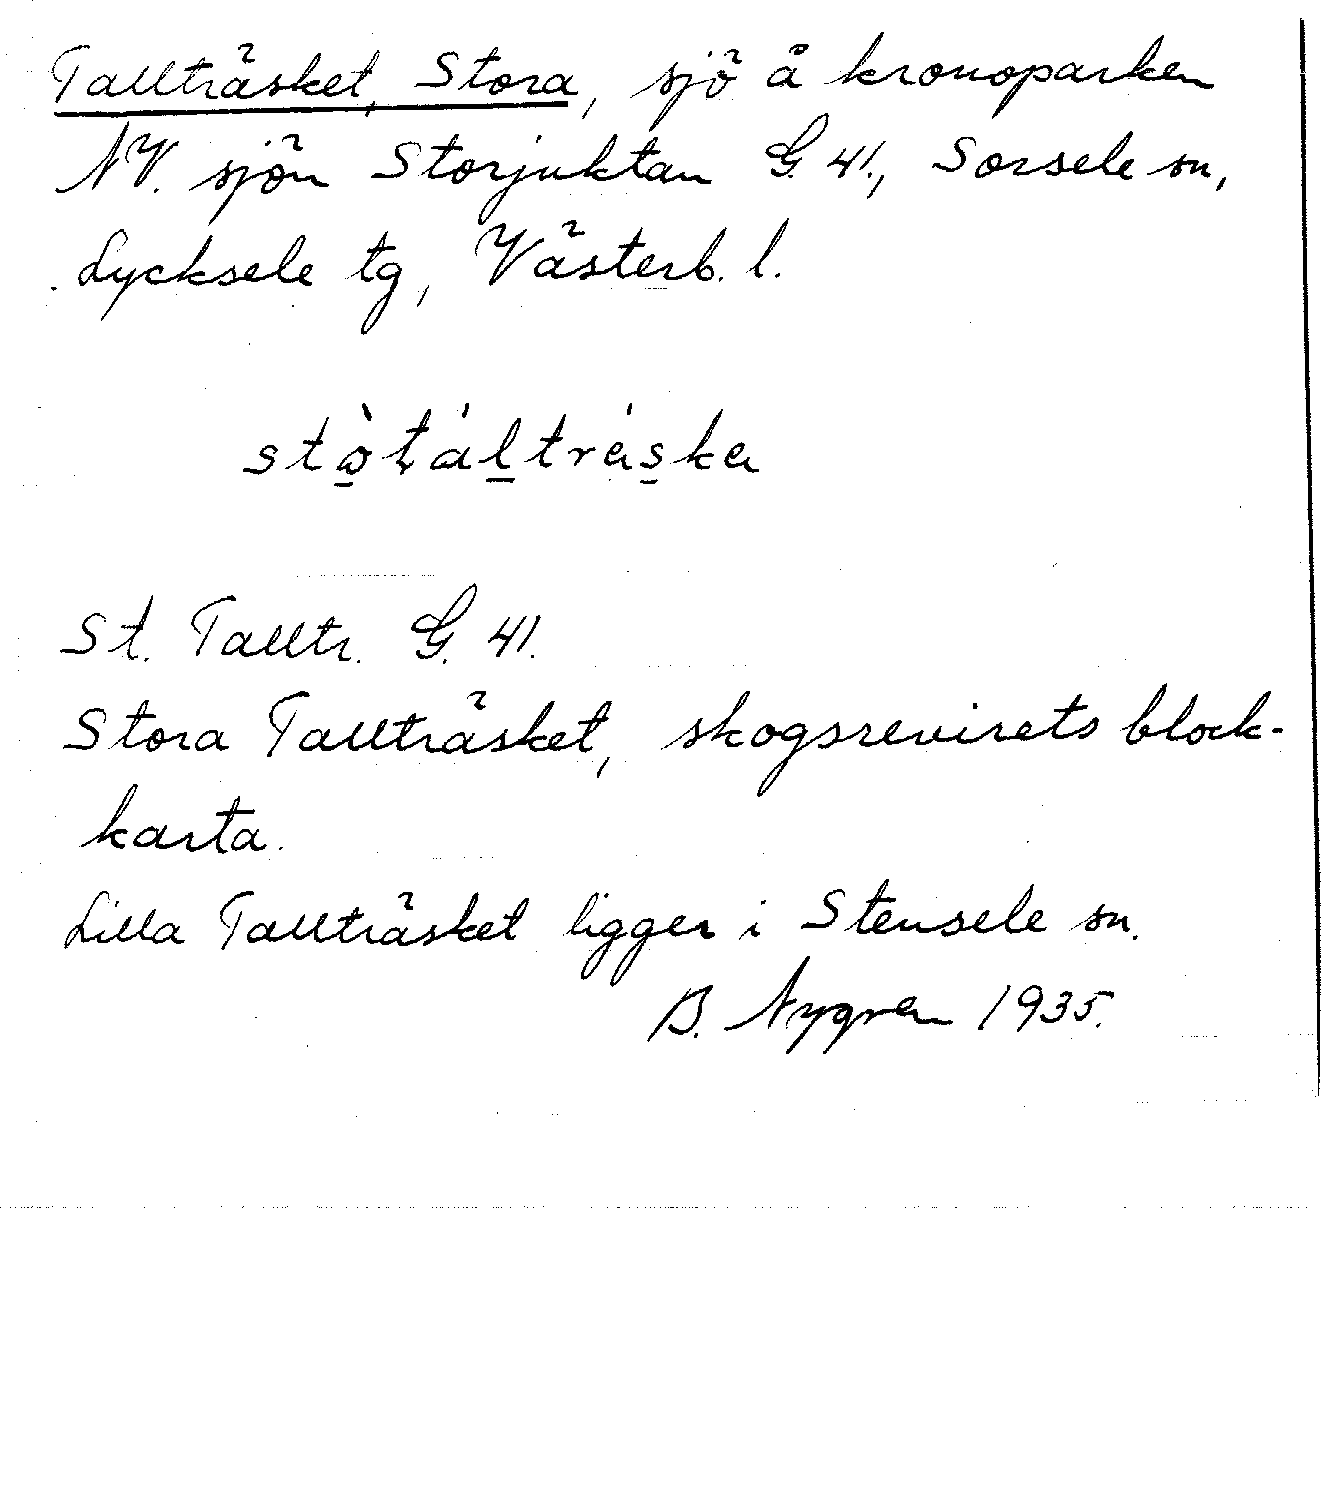 Tallträsket, Stora, sjö å kronoparken
NV. sjön Storjuktan G. 41., Sorsele sn,
Lycksele tg, Västerb. l.
St. Talltr. G. 41.
Stora Tallträsket, skogsrevirets block-
karta.
Lilla Tallträsket ligger i Stensele sn.
B. Nygren 1935.